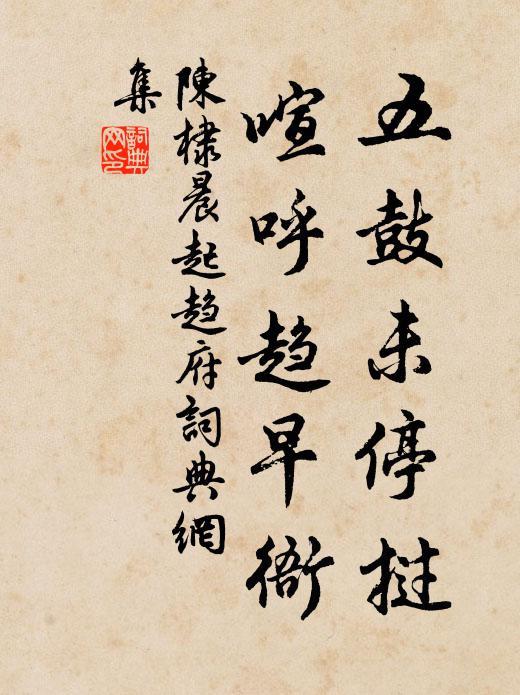 五鼓未停撾
喧呼趨早衙
陳棣晨起趨府詞典網
集
詞典
网印